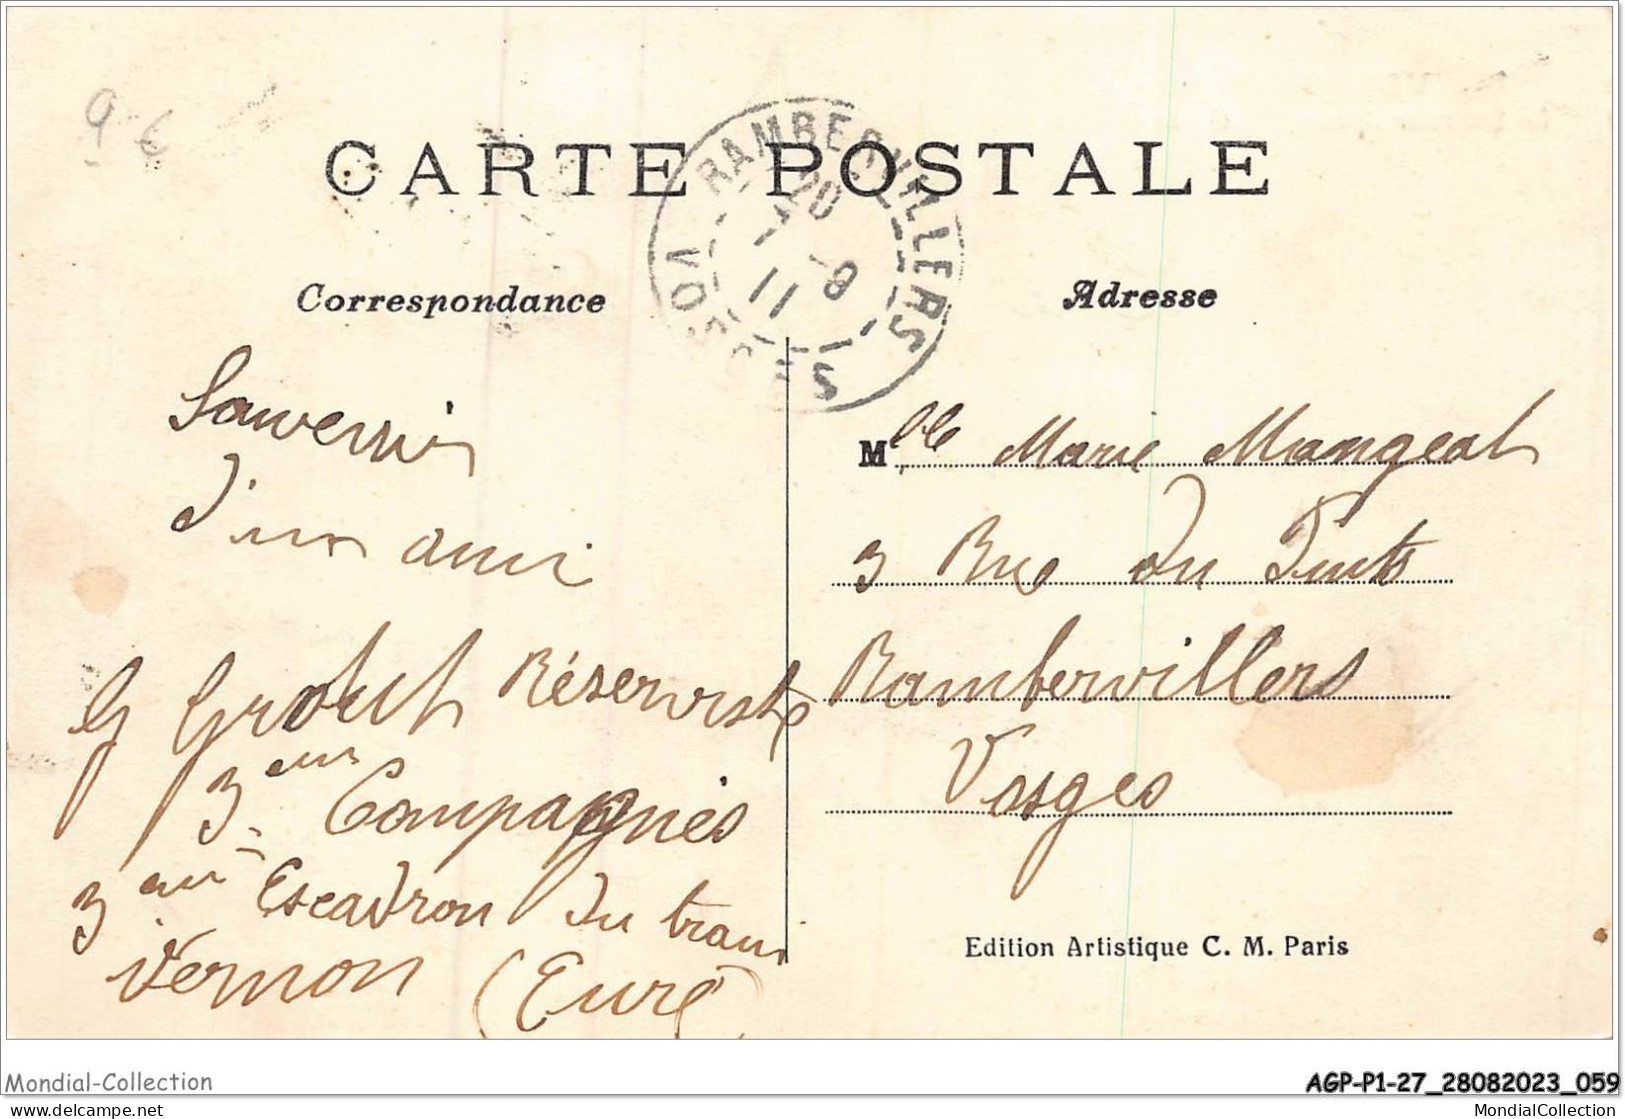 9 €
CARTE POSTALE
RAMBERVILLERS
VOSGES
11 - 8
Correspondance
Adresse
Souvenir
d'un ami
G Grobert Réserviste
3eme Compagnies
3eme Escadron du train
Vernon (Eure)
Mlle Marie Mangeat
3 Rue du Puits
Rambervillers
Vosges
Edition Artistique C. M. Paris
Mondial-Collection
AGP-P1-27_28082023_059
delcampe.net
MondialCollection